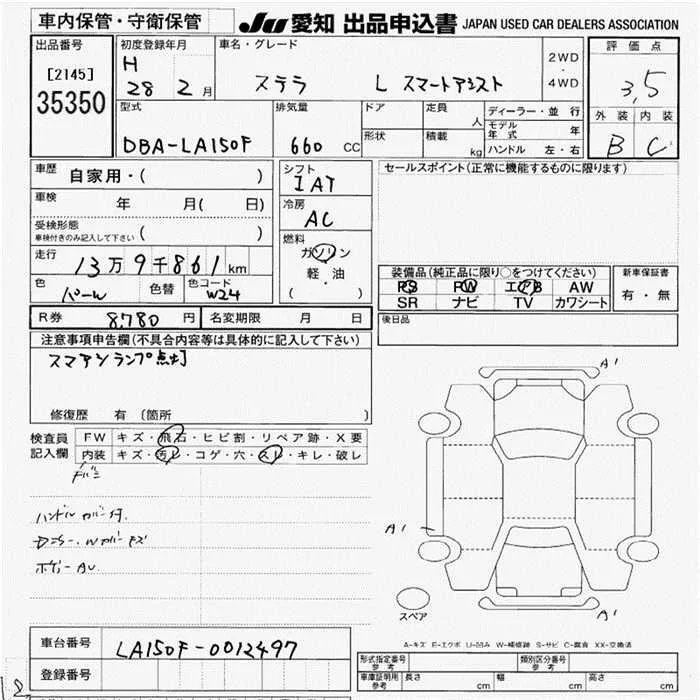 車内保管・守衛保管
JU 愛知 出品申込書 JAPAN USED CAR DEALERS ASSOCIATION
出品番号
[2145]
35350
初度登録年月
H
28 2 月
車名・グレード
ステラ L スマートアシスト
2WD
・
4WD
評価点
3,5
外装 内装
B C
型式
DBA-LA150F
排気量
660 CC
ドア
形状
定員
人
積載
kg
ディーラー・並行
モデル年式 年
ハンドル 左・右
車歴
自家用・( )
車検
年 月( 日)
受検形態
車検付きのみ記入して下さい ( )
走行
13万9千861km
色
パール
色替
色コード
W24
シフト
IAT
冷房
AC
燃料
ガソリン
軽・油
( )
セールスポイント(正常に機能するものに限ります)
装備品(純正品に限り○をつけてください)
PS PW エアB AW
SR ナビ TV カワシート
新車保証書
有・無
後日品
R券 8,780 円 名変期限 月 日
注意事項申告欄(不具合内容等は具体的に記入して下さい)
スマアシランプ点灯
修復歴 有 〔箇所 〕
検査員
記入欄
FW キズ・飛石・ヒビ割・リペア跡・X要
内装 キズ・汚レ・コゲ・穴・スレ・キレ・破レ
ハンドルカバー付
ボデーAU
A1
A1
A1
スペア
A-キズ E-エクボ U-凹み W-補修跡 S-サビ C-腐食 XX-交換済
車台番号 LA150F-0012497
登録番号
形式指定番号
参考
類別区分番号
参考
車庫証明用
参考
長さ cm 幅 cm 高さ cm